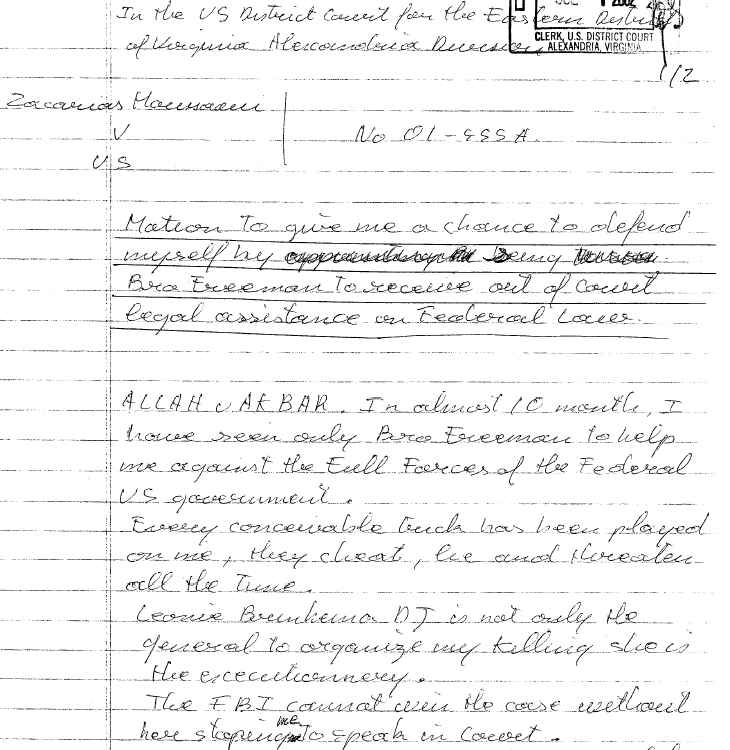 In the US District Court for the Eastern District
of Virginia Alexandria Division
2002
CLERK, U.S. DISTRICT COURT
ALEXANDRIA, VIRGINIA
1/2
Zacarias Moussaoui
V
No 01-455 A
US
Motion to give me a chance to defend
myself by being
Bro Freeman to receive out of court
legal assistance on Federal Lawer.
ALLAH u AKBAR. In almost 10 month, I
have seen only Bro Freeman to help
me against the Full Forces of the Federal
US government.
Every conceivable trick has been played
on me, they cheat, lie and threaten
all the time.
Leonie Brinkema DJ is not only the
general to organize my killing she is
the executionnery.
The FBI cannot win the case without
her stoping me to speak in Court.